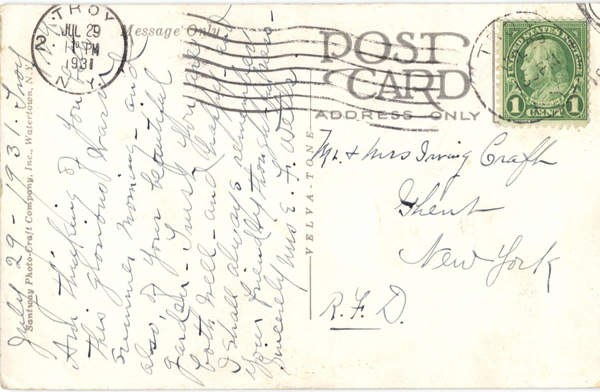 TROY
N.Y.
JUL 29
PM
1931
Message Only
POST
CARD
ADDRESS ONLY
UNITED STATES POSTAGE
1 CENT 1
VELVA-TINE
Santway Photo-Craft Company, Inc., Watertown, N.Y.
July 29-1931. Troy
Am thinking of you
this glorious
summer morning - and
also of your beautiful
garden - I wish you are
both well - and happy - and
I shall always remember
your friendly thoughtfulness -
Sincerely Mrs E. F. Wells
Mr. & Mrs Irving Craft
Ghent
New York
R.F.D.